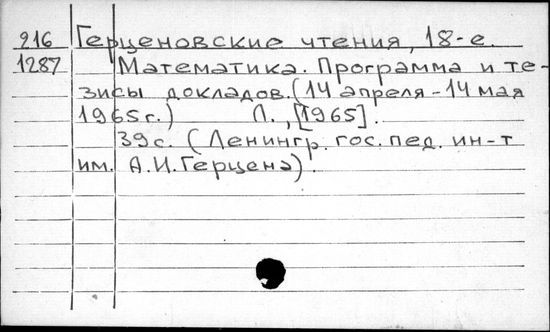 216 Герценовские чтения, 18-е.
1287 Математика. Программа и те-
зисы докладов. (14 апреля - 14 мая
1965 г.) Л., [1965].
39 с. (Ленингр. гос. пед. ин-т
им. А.И. Герцена).